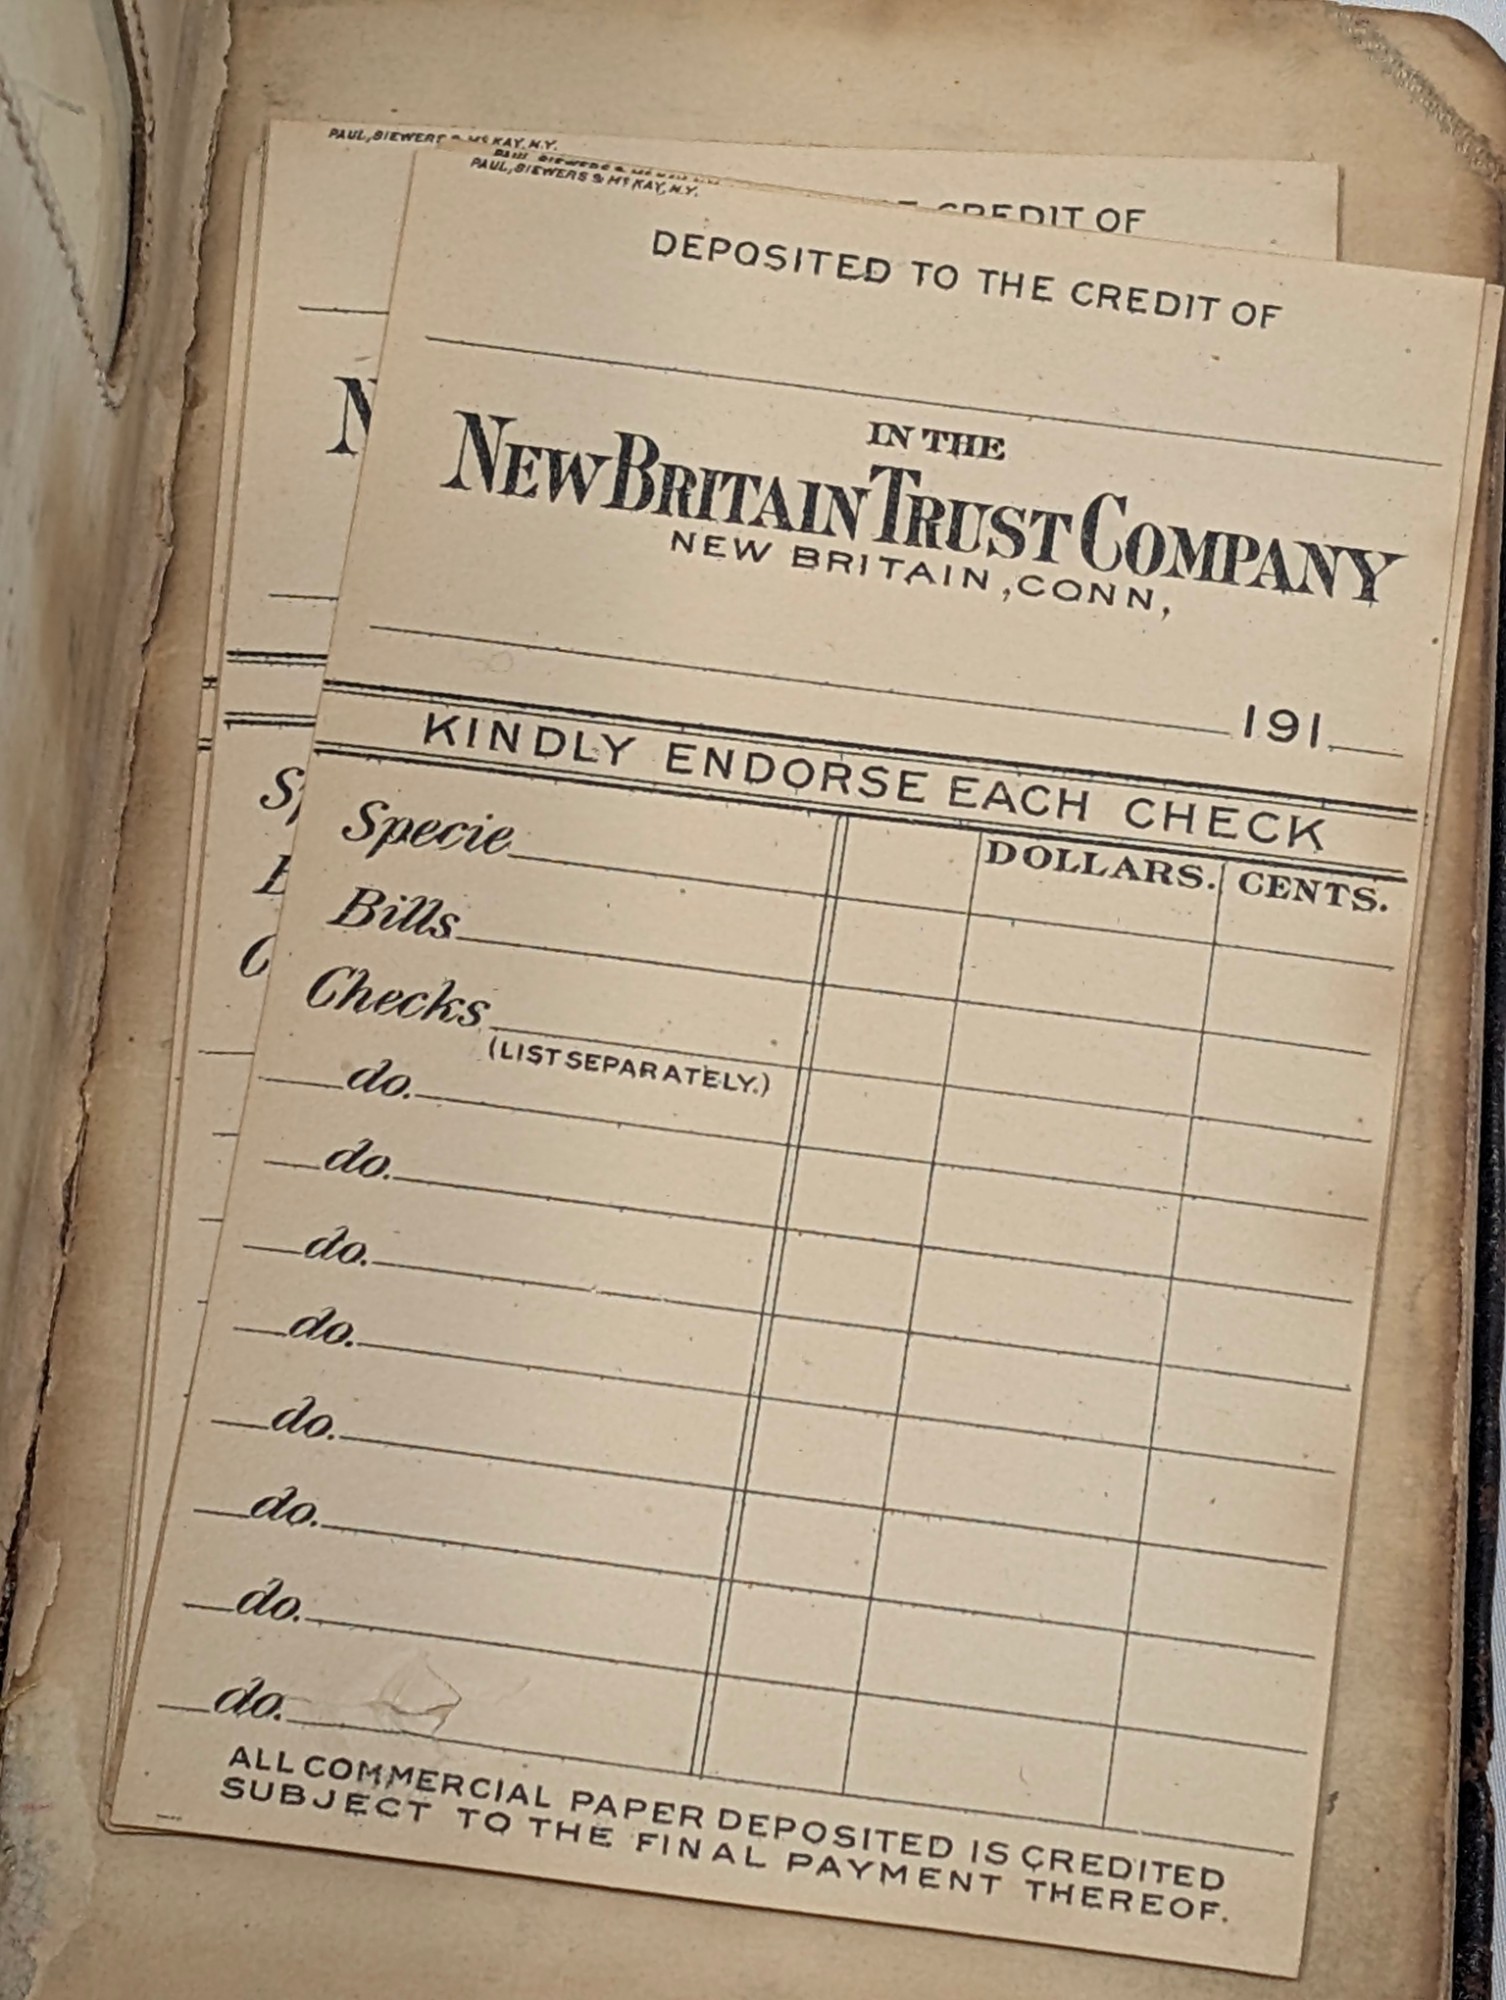 PAUL, SIEWERS & McKAY, N.Y.
PAUL, SIEWERS & McKAY, N.Y.
CREDIT OF
DEPOSITED TO THE CREDIT OF
IN THE
N
NEW BRITAIN TRUST COMPANY
NEW BRITAIN, CONN,
191
KINDLY ENDORSE EACH CHECK
DOLLARS. CENTS.
Sp
Specie
B
Bills
C
Checks
(LIST SEPARATELY.)
do.
do.
do.
do.
do.
do.
do.
do.
ALL COMMERCIAL PAPER DEPOSITED IS CREDITED
SUBJECT TO THE FINAL PAYMENT THEREOF.